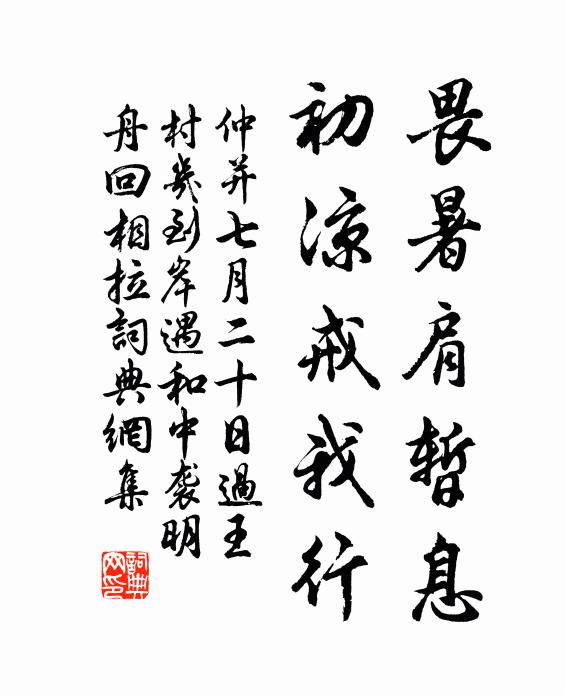 畏暑肩暫息
初涼戒我行
仲并七月二十日過王
村幾到岸遇和中袭明
舟回相拉詞典網集
詞典
网印